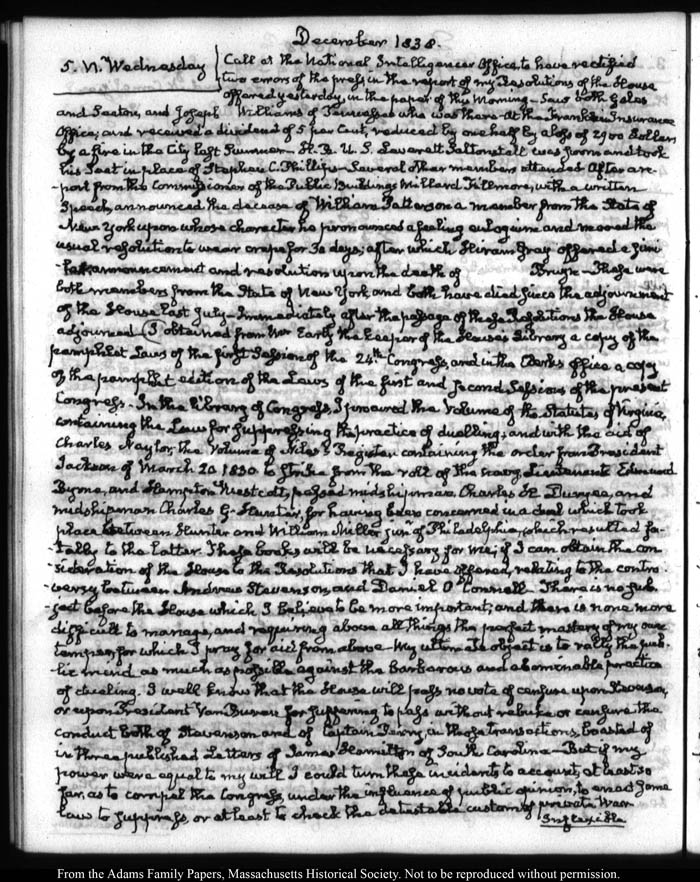 December 1838.
5. IV. Wednesday
Call at the National Intelligencer Office, to have rectified
two errors of the press in the report of my Resolutions of the House
offered yesterday, in the paper of this Morning - Saw both Gales
and Seaton, and Joseph Williams of Tennessee who was there - At the Franklin Insurance
Office, and received a dividend of 5 per Cent, reduced by one half by a loss of 2900 Dollars
by a fire in the City last Summer - H. R. U. S. Leverett Saltonstall was sworn and took
his Seat in place of Stephen C. Phillips - Several other members attended. After a re-
-port from the Commissioner of the Public Buildings Millard Fillmore, with a written
Speech, announced the decease of William Patterson a member from the State of
New York upon whose character he pronounced a feeling eulogium and moved the
usual resolution to wear crape for 30 days; after which Hiram Gray offered a simi-
-lar announcement and resolution upon the death of Bruyn - These were
both members from the State of New York, and both have died since the adjournment
of the House last July - Immediately after the passage of these Resolutions the House
adjourned. I obtained from Mr Early the keeper of the Houses Library a copy of the
pamphlet Laws of the first Session of the 24th Congress, and in the Clerks office a copy
of the pamphlet edition of the Laws of the first and second Sessions of the present
Congress - In the Library of Congress, I procured the Volume of the Statutes of Virginia,
containing the Laws for suppressing the practice of duelling; and with the aid of
Charles Naylor, the Volume of Niles's Register containing the order from President
Jackson of March 20 1830 to strike from the roll of the navy, Lieutenants Edmund
Byrne, and Hampton Westcott, passed midshipman Charles H. Duryee, and
midshipman Charles G. Hunter, for having been concerned in a duel which took
place between Hunter and William Miller junr of Philadelphia, which resulted fa-
-tally to the latter. These books will be necessary for me, if I can obtain the con-
-sideration of the House to the Resolutions that I have offered, relating to the contro-
-versy between Andrew Stevenson, and Daniel O'Connell. There is no sub-
-ject before the House which I believe to be more important; and there is none more
difficult to manage, and requiring above all things the perfect mastery of my own
temper, for which I pray for aid from above - My ultimate object is to rally the pub-
-lic mind as much as possible against the barbarous and abominable practice
of duelling. I well know that the House will pass no vote of censure upon Stevenson,
or upon President Van Buren for suffering to pass without rebuke or censure the
conduct both of Stevenson and of Captain Perry, in those transactions, boasted of
in three published Letters of James Hamilton of South Carolina - But if my
power were equal to my will I could turn these incidents to account, at least so
far, as to compel the Congress, under the influence of public opinion, to enact some
Law to suppress, or at least to check the detestable custom of private War
Inflexible
From the Adams Family Papers, Massachusetts Historical Society. Not to be reproduced without permission.